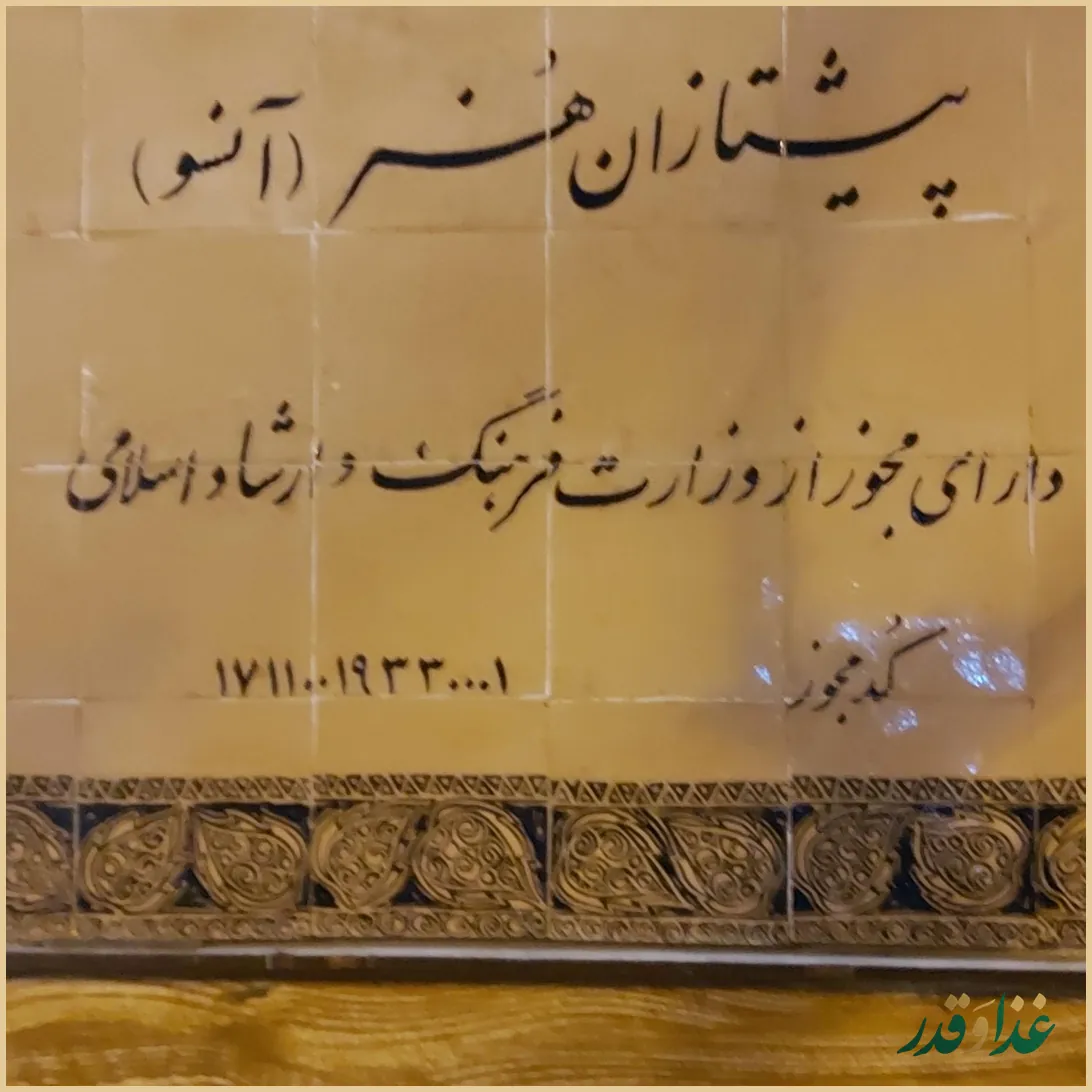 پیشتازان هُنر (آنسو)
دارای مجوز از وزارت فرهنگ و ارشاد اسلامی
کُد مجوز ۱۷۱۱۰۰۱۹۳۳۰۰۰۱
غذا و قدر